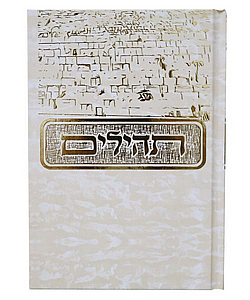 תהילים